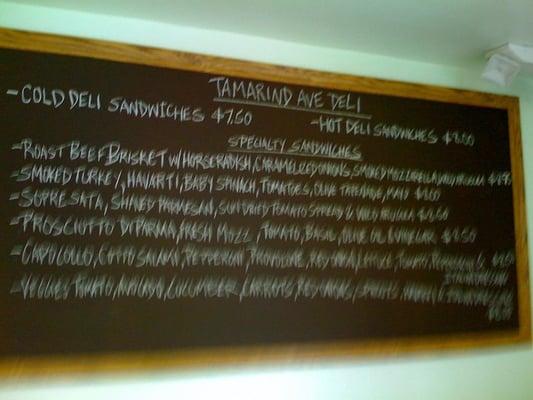 TAMARIND AVE DELI
-COLD DELI SANDWICHES $7.50
-HOT DELI SANDWICHES $8.00
SPECIALTY SANDWICHES
-ROAST BEEF BRISKET W/ HORSERADISH, CARAMELIZED ONIONS, SMOKED MOZZARELLA, WILD ARUGULA
-SMOKED TURKEY, HAVARTI, BABY SPINACH, TOMATOES, OLIVE TAPENADE, MAYO
-SOPRESATA, SHAVED PARMESAN, SUN DRIED TOMATO SPREAD & WILD ARUGULA
-PROSCIUTTO DI PARMA, FRESH MOZZ, TOMATO, BASIL, OLIVE OIL & VINEGAR $8.50
-CAPOCOLLO, COTTO SALAMI, PEPPERONI, PROVOLONE, RED ONION, LETTUCE, TOMATO,
-VEGGIES TOMATO, AVOCADO, CUCUMBER, CARROTS, RED ONIONS, SPROUTS